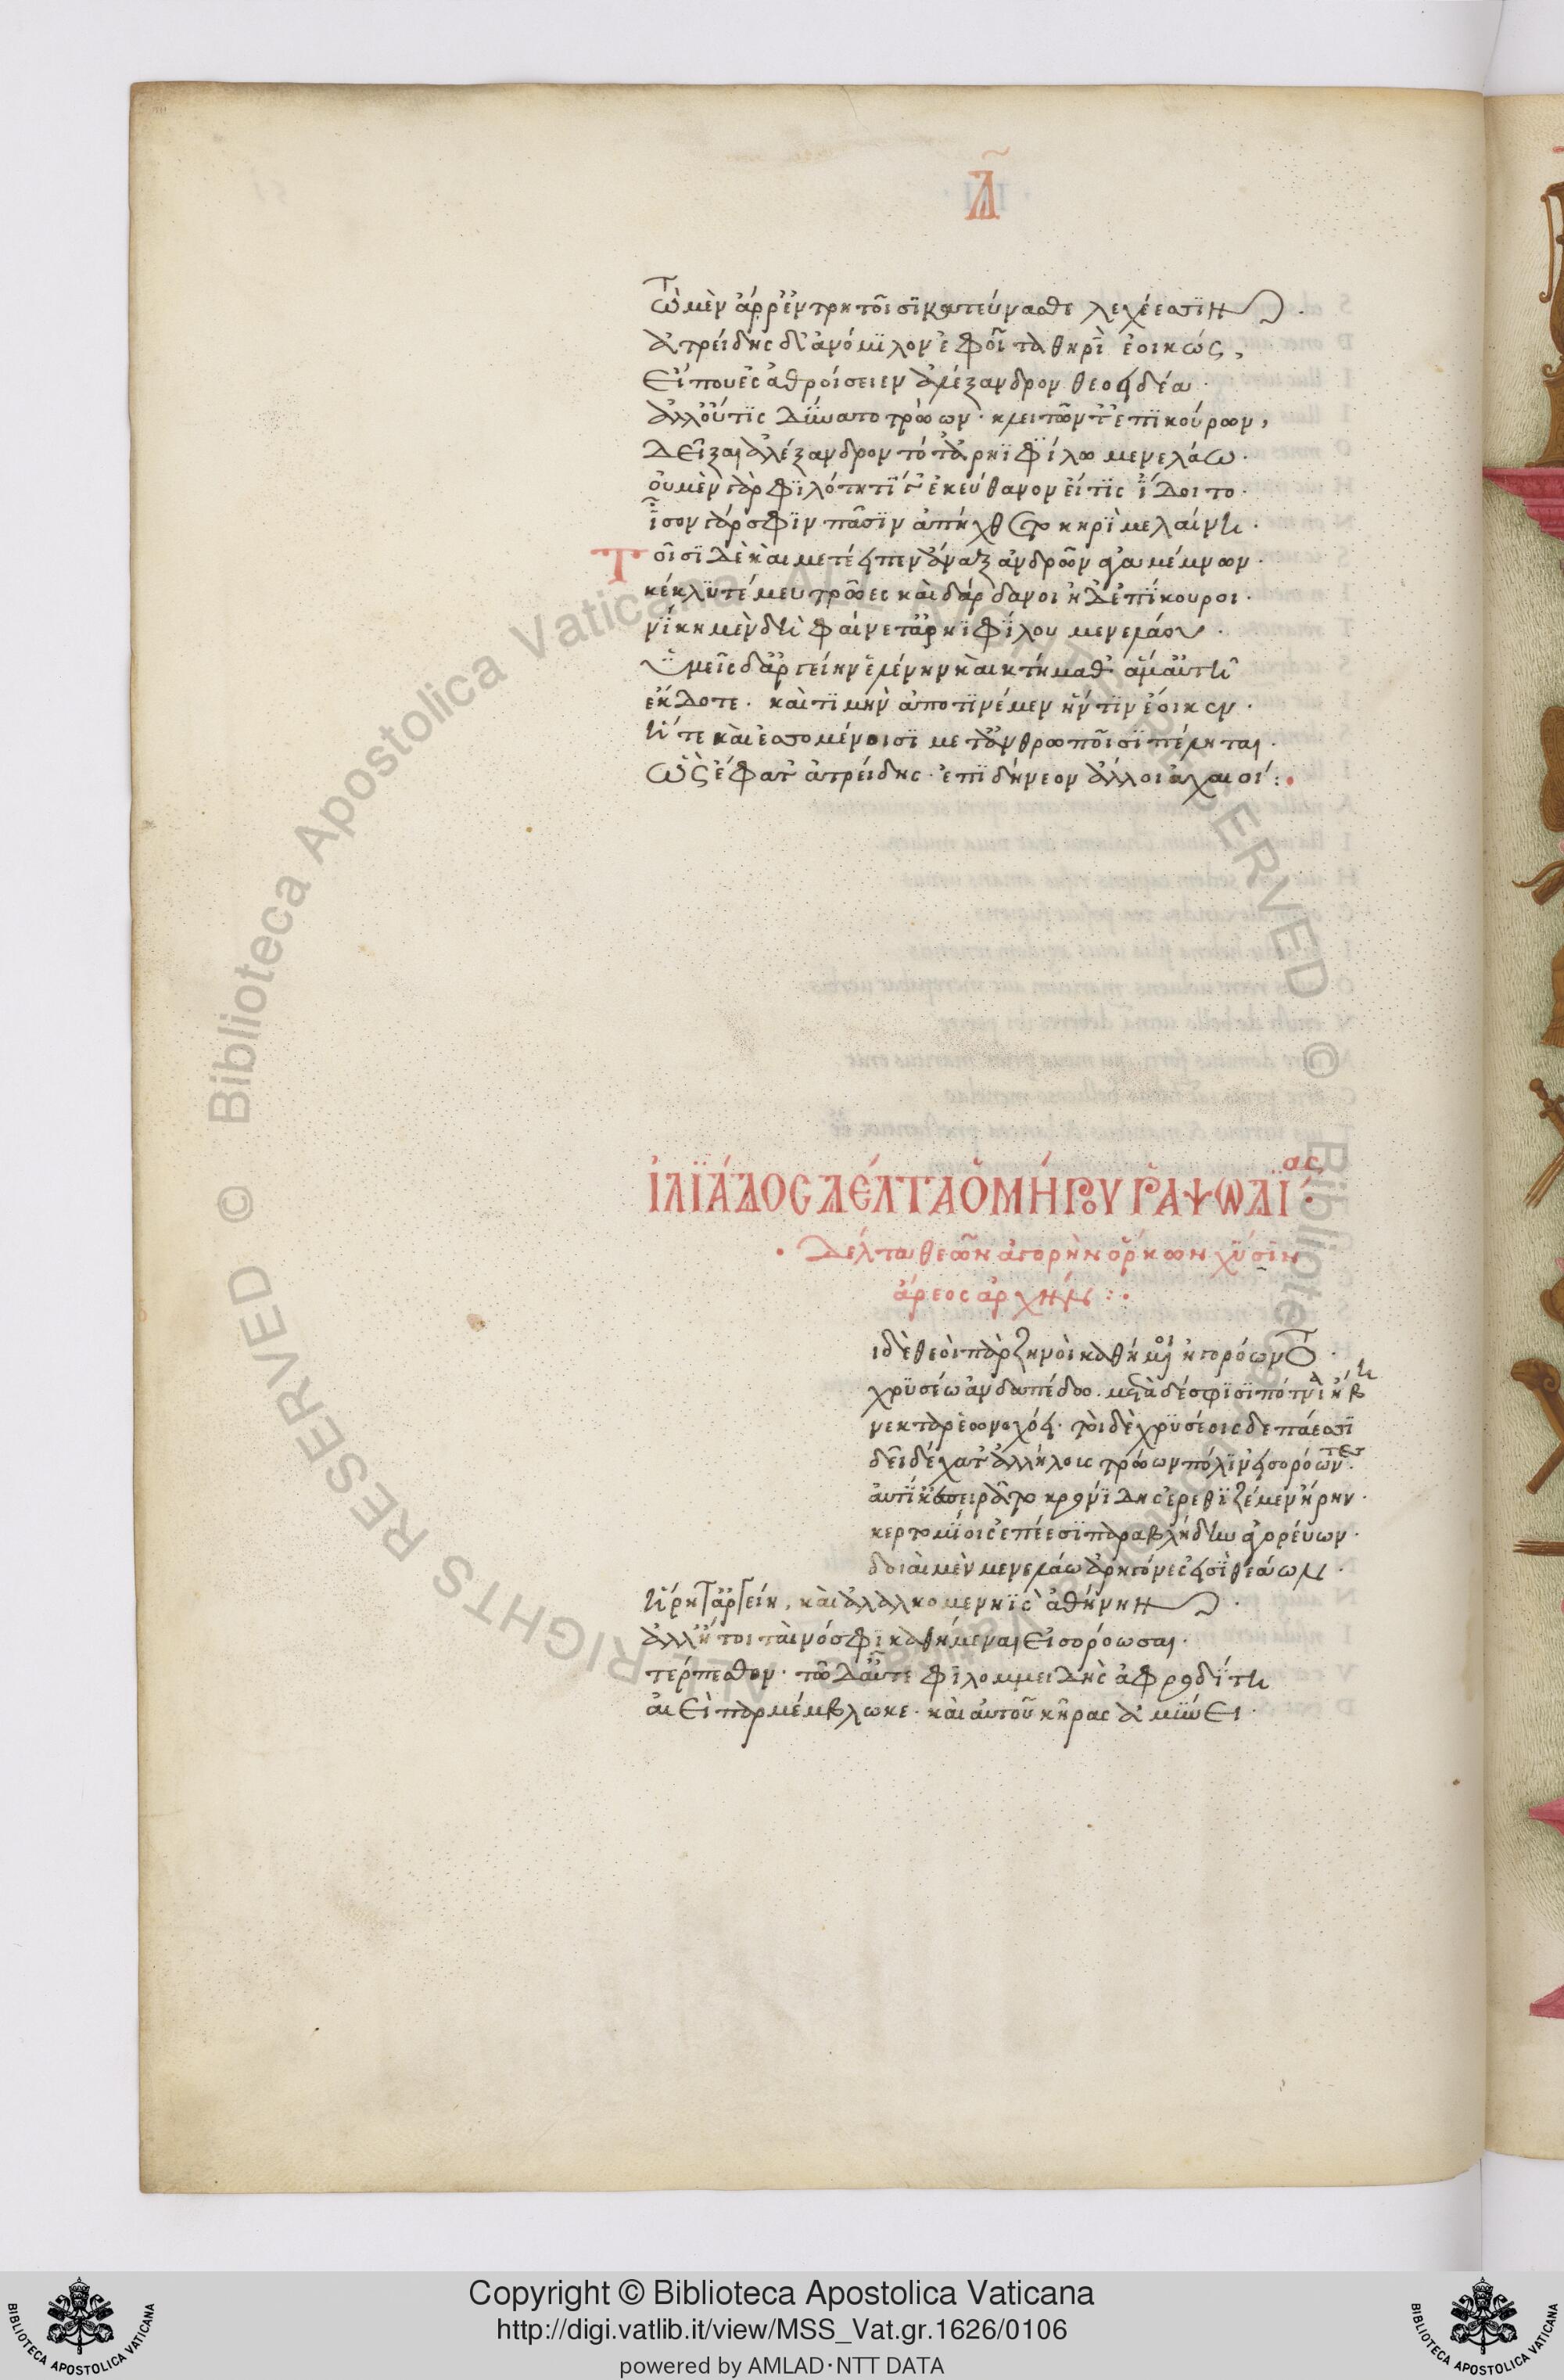 Δ
Τὼ μὲν ἄρ ῥ' ἐν τρητοῖσϊ κατεύνασθε λεχέεσσϊν.
Ἀτρείδης δ' ἀν' ὅμϊλον ἐφοῖτα θηρὶ ἐοικώς,
Εἴ που ἐσαθροίσειεν ἀλέξανδρον θεοειδέα.
Ἀλλ' οὔτϊς δύνατο τρώων. κλειτῶν τ' ἐπϊκούρων,
Δεῖξαι ἀλέξανδρον τότ' ἀρηϊφίλω μενελάω.
οὐ μὲν γὰρ φϊλότητί γ' ἐκεύθανον εἴ τϊς ἴδοιτο.
ἶσον γάρ σφϊν πᾶσϊν ἀπήχθετο κηρὶ μελαίνη.
Τοῖσϊ δὲ καὶ μετέειπεν ἄναξ ἀνδρῶν ἀγαμέμνων.
κέκλϋτέ μευ τρῶες καὶ δάρδανοι ἠδ' ἐπΐκουροι.
νΐκη μὲν δὴ φαίνετ' ἀρηϊφΐλου μενελάου.
Ὑμεῖς δ' ἀργείην ἑλένην καὶ κτήμαθ' ἅμ' αὐτῆ
ἔκδοτε. καὶ τϊμὴν ἀποτϊνέμεν ἥν τϊν' ἔοικεν.
ἥ τε καὶ ἐσσομένοισϊ μετ' ἀνθρώποισϊ πέληται.
Ὣς ἔφατ' ἀτρείδης. ἐπὶ δ' ἤνεον ἄλλοι ἀχαιοί:.
ἸΛΪΆΔΟΣ ΔΈΛΤΑ ὉΜΉΡΟΥ ῬΑΨΩΔΪ́ας:
. Δέλτα θεῶν ἀγορὴν ὅρκων χΰσϊν
ἄρεος ἀρχήν:.
ιδὲ θεοὶ πὰρ ζηνὶ καθήμενοι ἠγορόωντο.
χρϋσέω ἐν δαπέδω. μετὰ δέ σφϊσϊ πότνια ἥβη
νέκταρ ἐωνοχόει. τοὶ δὲ χρϋσέοις δεπάεσσϊ
δειδέχατ' ἀλλήλοις τρώων πόλϊν εἰσορόωντες.
αὐτίκ' ἐπειρᾶτο κρονΐδης ἐρεθϊζέμεν ἥρην.
κερτομΐοις ἐπέεσϊ παραβλήδην ἀγορεύων.
δοιαὶ μὲν μενελάω ἀρηγόνες εἰσϊ θεάων.
ἥρη τ' ἀργείη, καὶ ἀλαλκομενηῒς ἀθήνη.
ἀλλ' ἤτοι ταὶ νόσφϊ καθήμεναι εἰσορόωσαι.
τέρπεσθον. τῶ δ' αὖτε φϊλομμειδὴς ἀφροδΐτη
αἰεὶ παρμέμβλωκε. καὶ αὐτοῦ κῆρας ἀμΰνει.
Copyright © Biblioteca Apostolica Vaticana
http://digi.vatlib.it/view/MSS_Vat.gr.1626/0106
powered by AMLAD·NTT DATA
BIBLIOTECA APOSTOLICA VATICANA
BIBLIOTECA APOSTOLICA VATICANA
© Biblioteca Apostolica Vaticana ALL RIGHTS RESERVED © Biblioteca Apostolica Vaticana ALL RIGHTS RESERVED